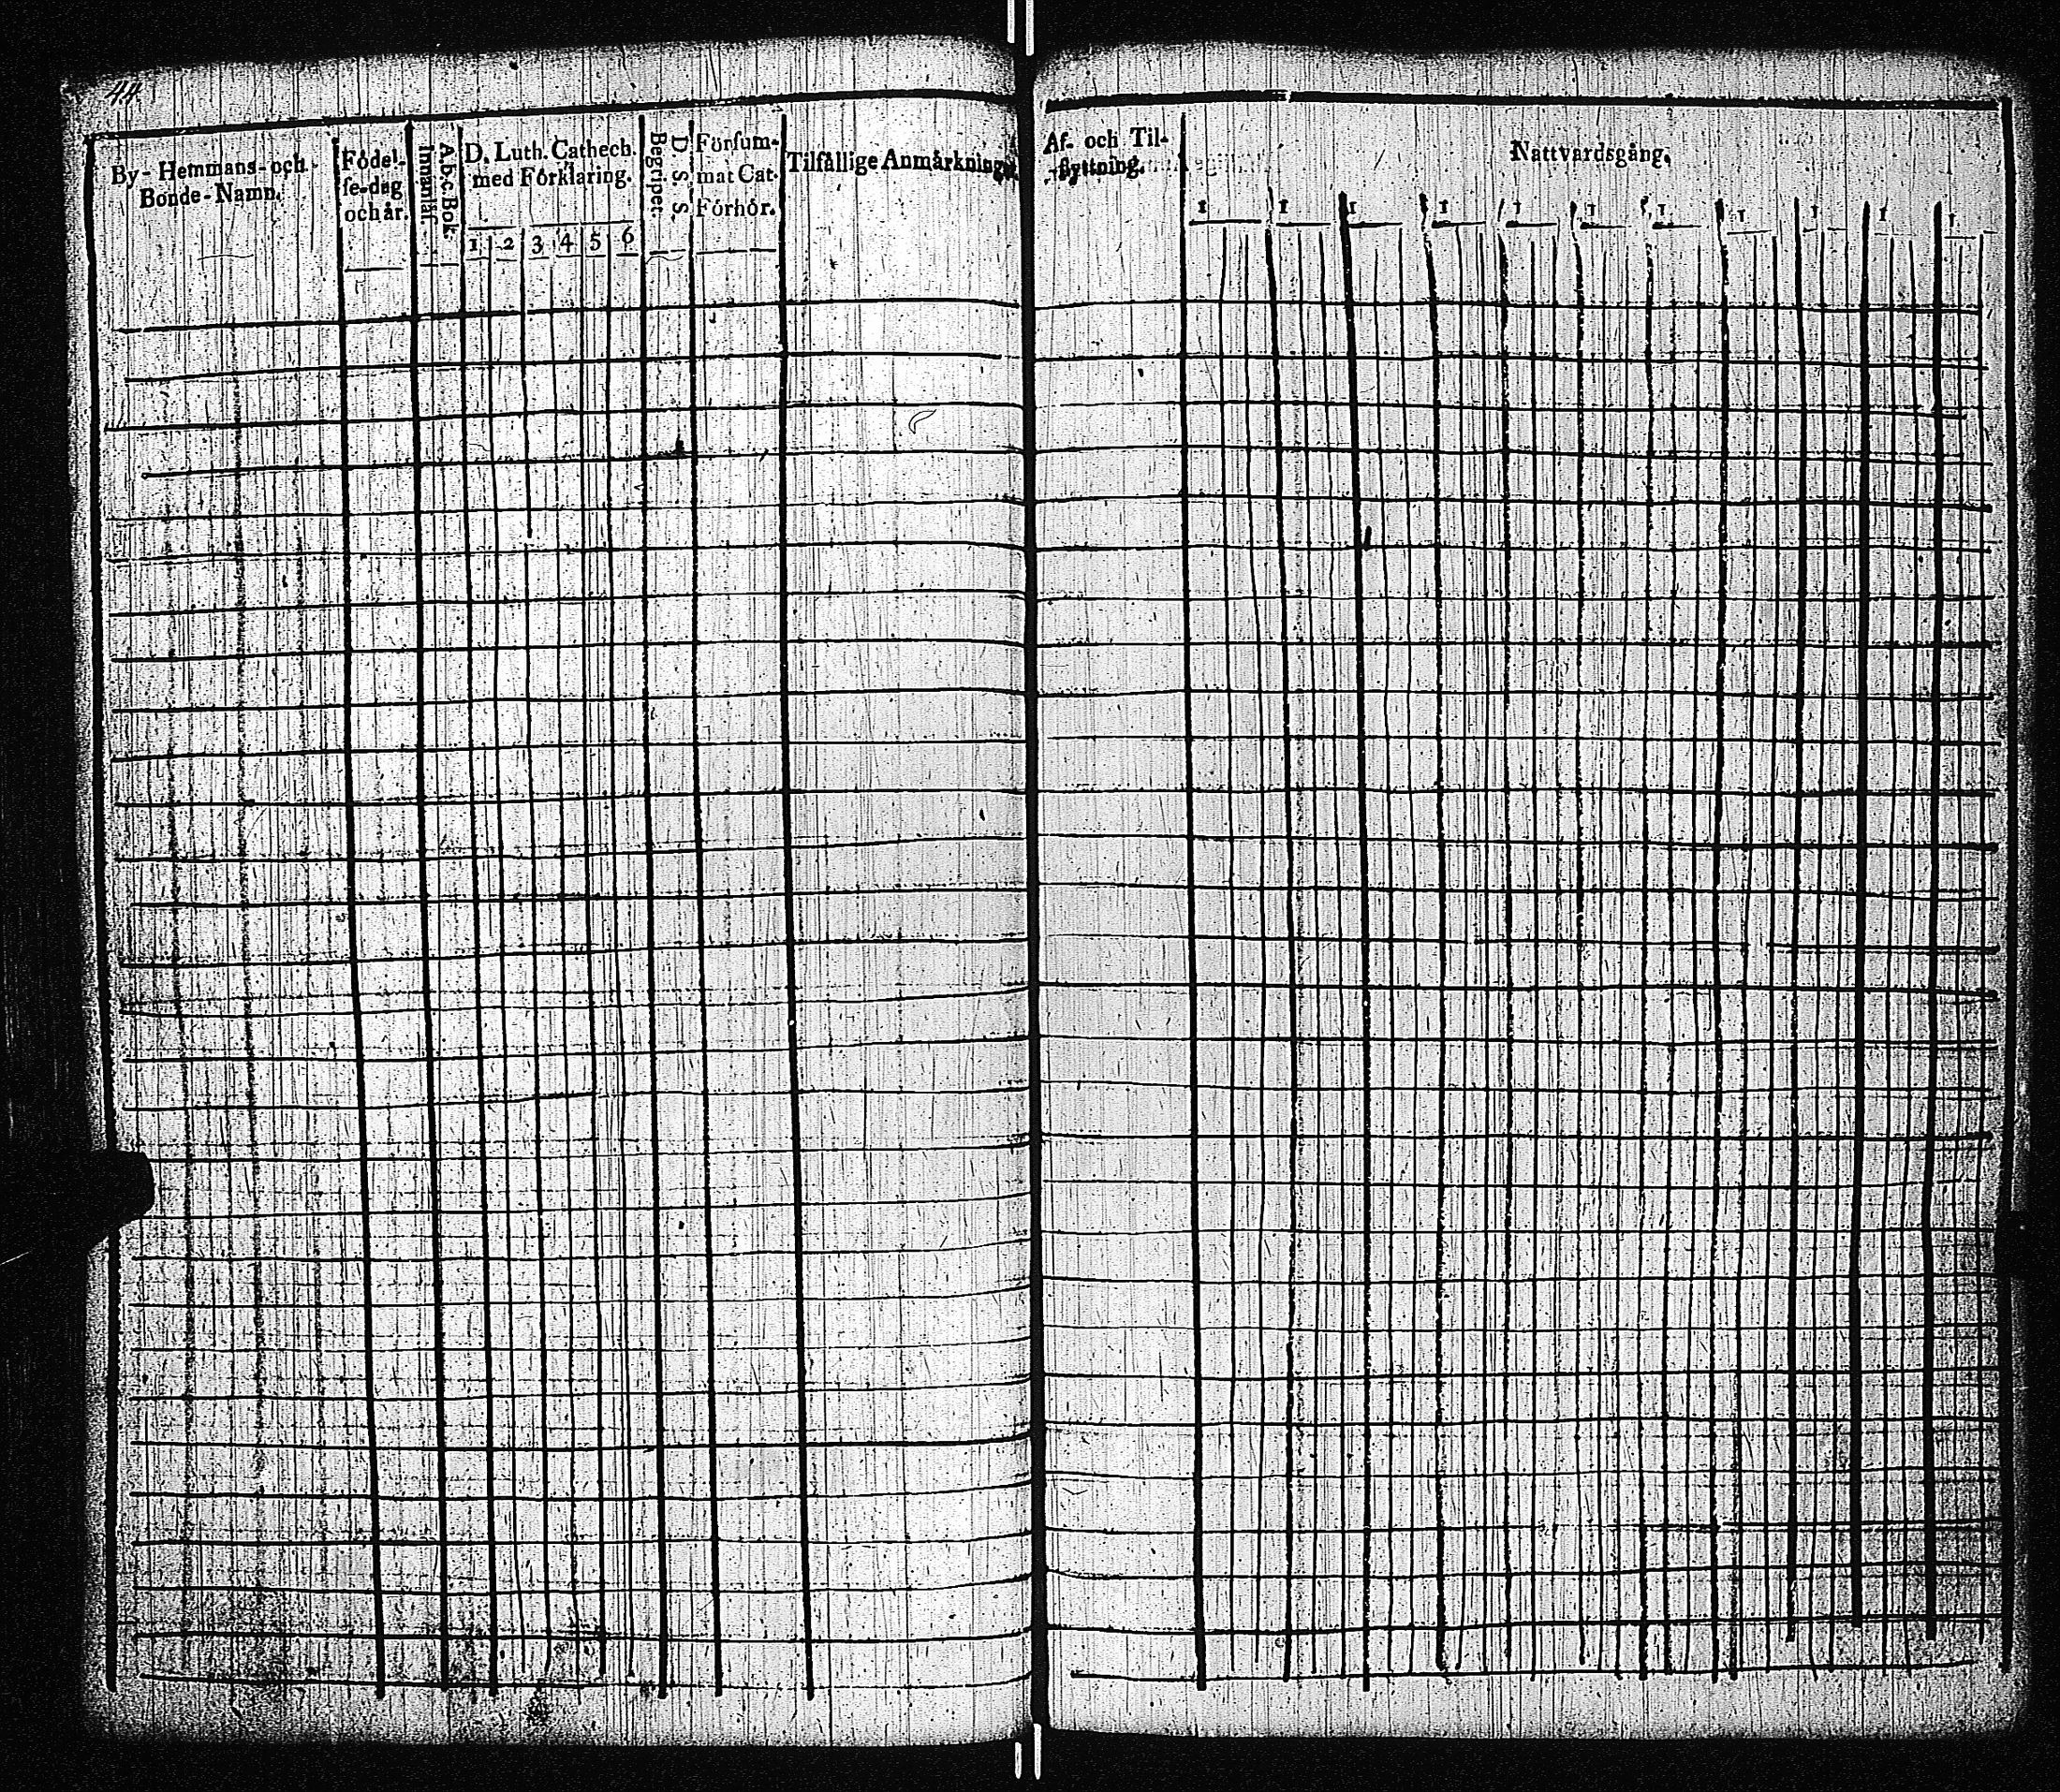 44
By- Hemmans- och
Bonde-Namn.
Födel-
se-dag
och år.
A.b.c. Bok
Innanläs.
D. Luth. Cathech.
med Förklaring.
1 2 3 4 5 6
D. s. s.
Begriper.
Försum-
mat Cat.
Förhör.
Tilfällige Anmärkningar.
Af- och Til-
flyttning.
Nattvardsgång.
1 1 1 1 1 1 1 1 1 1 1